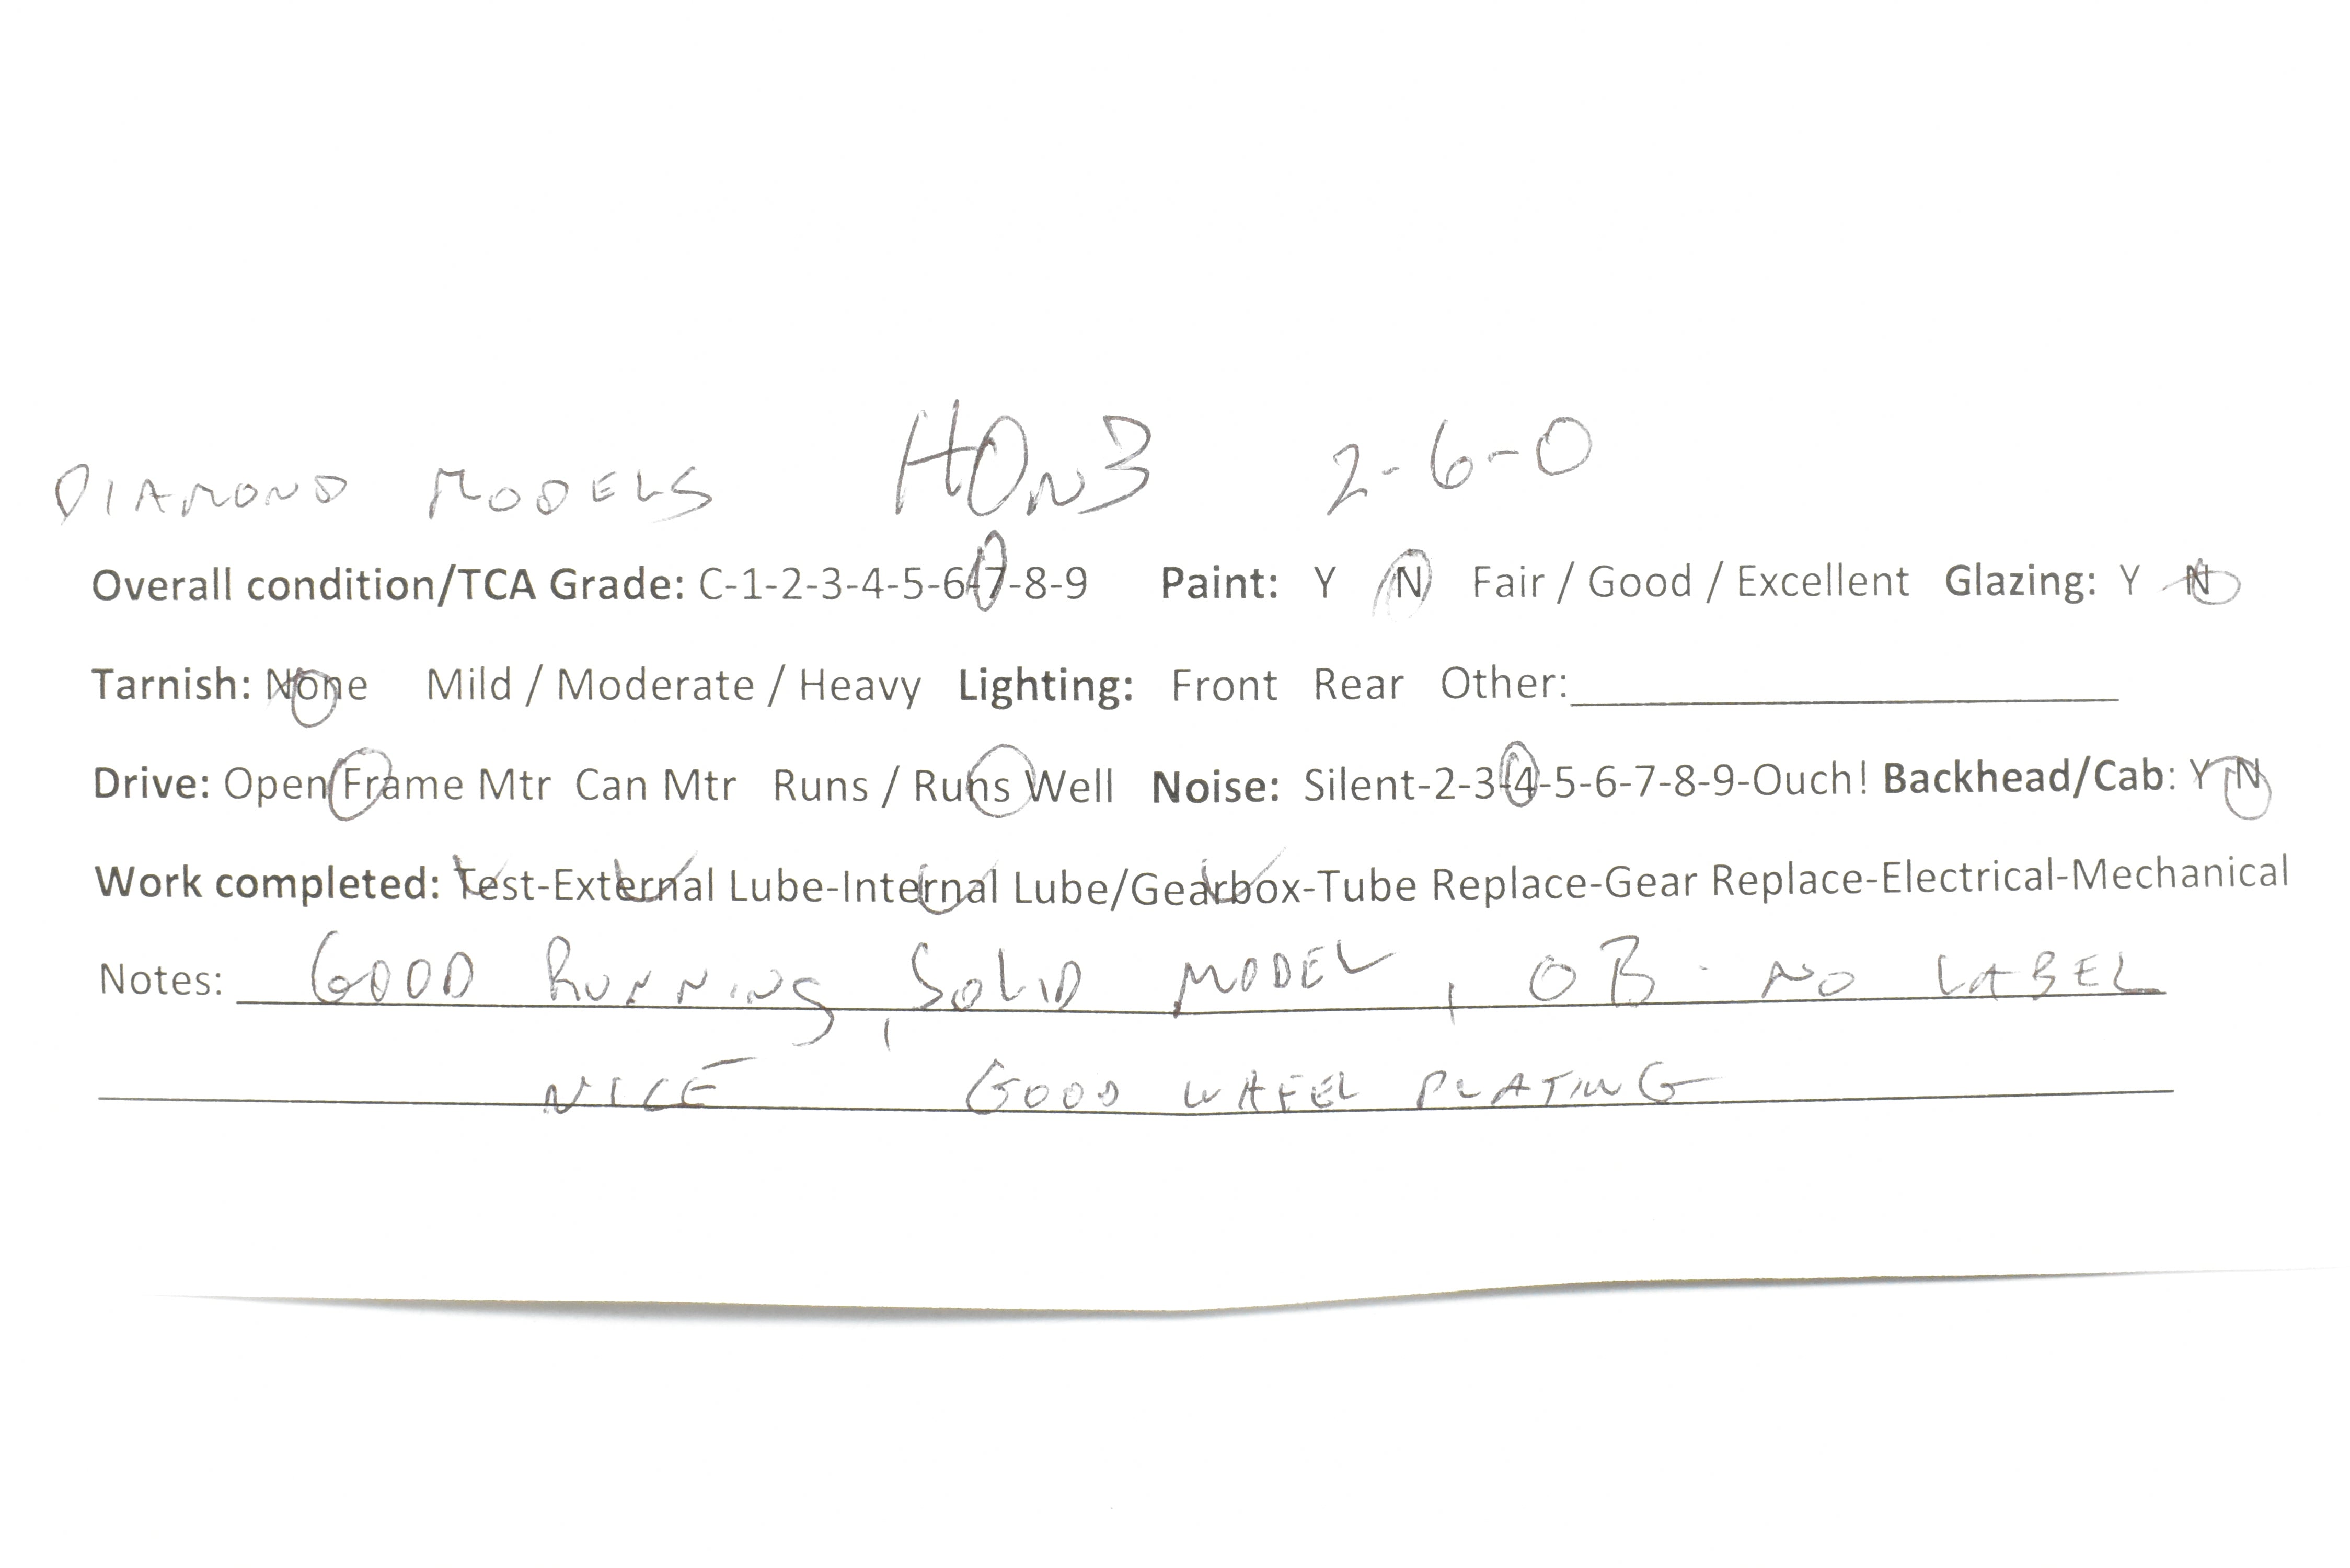 DIAMOND MODELS HOn3 2-6-0
Overall condition/TCA Grade: C-1-2-3-4-5-6-7-8-9 Paint: Y / N Fair / Good / Excellent Glazing: Y N
Tarnish: None Mild / Moderate / Heavy Lighting: Front Rear Other:
Drive: Open Frame Mtr Can Mtr Runs / Runs Well Noise: Silent-2-3-4-5-6-7-8-9-Ouch! Backhead/Cab: Y N
Work completed: Test-External Lube-Internal Lube/Gearbox-Tube Replace-Gear Replace-Electrical-Mechanical
Notes: GOOD RUNNING, SOLID MODEL, OB - NO LABEL
NICE GOOD WHEEL PLATING